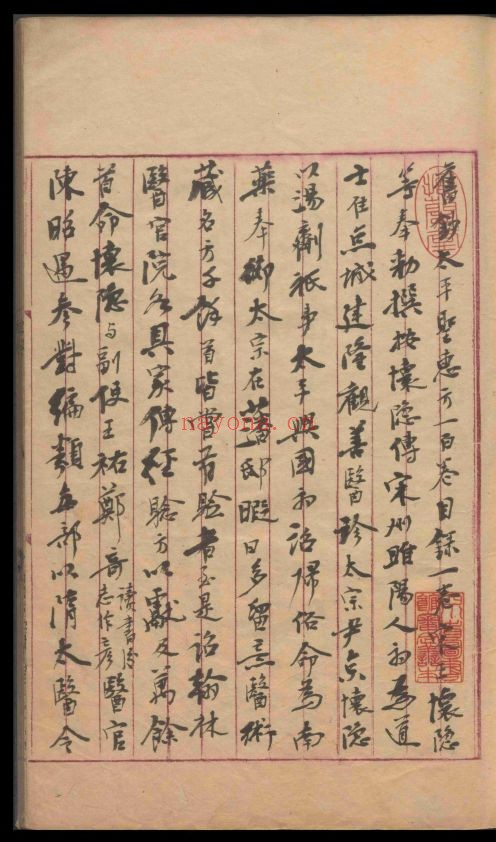 舊鈔太平聖惠方一百卷目錄一卷宋王懷隱
等奉勅撰按懷隐傳宋州睢陽人初為道
士住京城建隆觀善醫珍太宗尹京懷隐
以湯劑祇事太平興國初詔歸俗命為尚
藥奉御太宗在藩邸暇日多留意醫術
藏名方千餘首皆嘗有驗者至是詔翰林
醫官院各具家傳經驗方以獻又萬餘
首命懷隐与副使王祐鄭奇讀書後志作彥醫官
陳昭遇參對編類每部以隋太醫令
nayona.cn